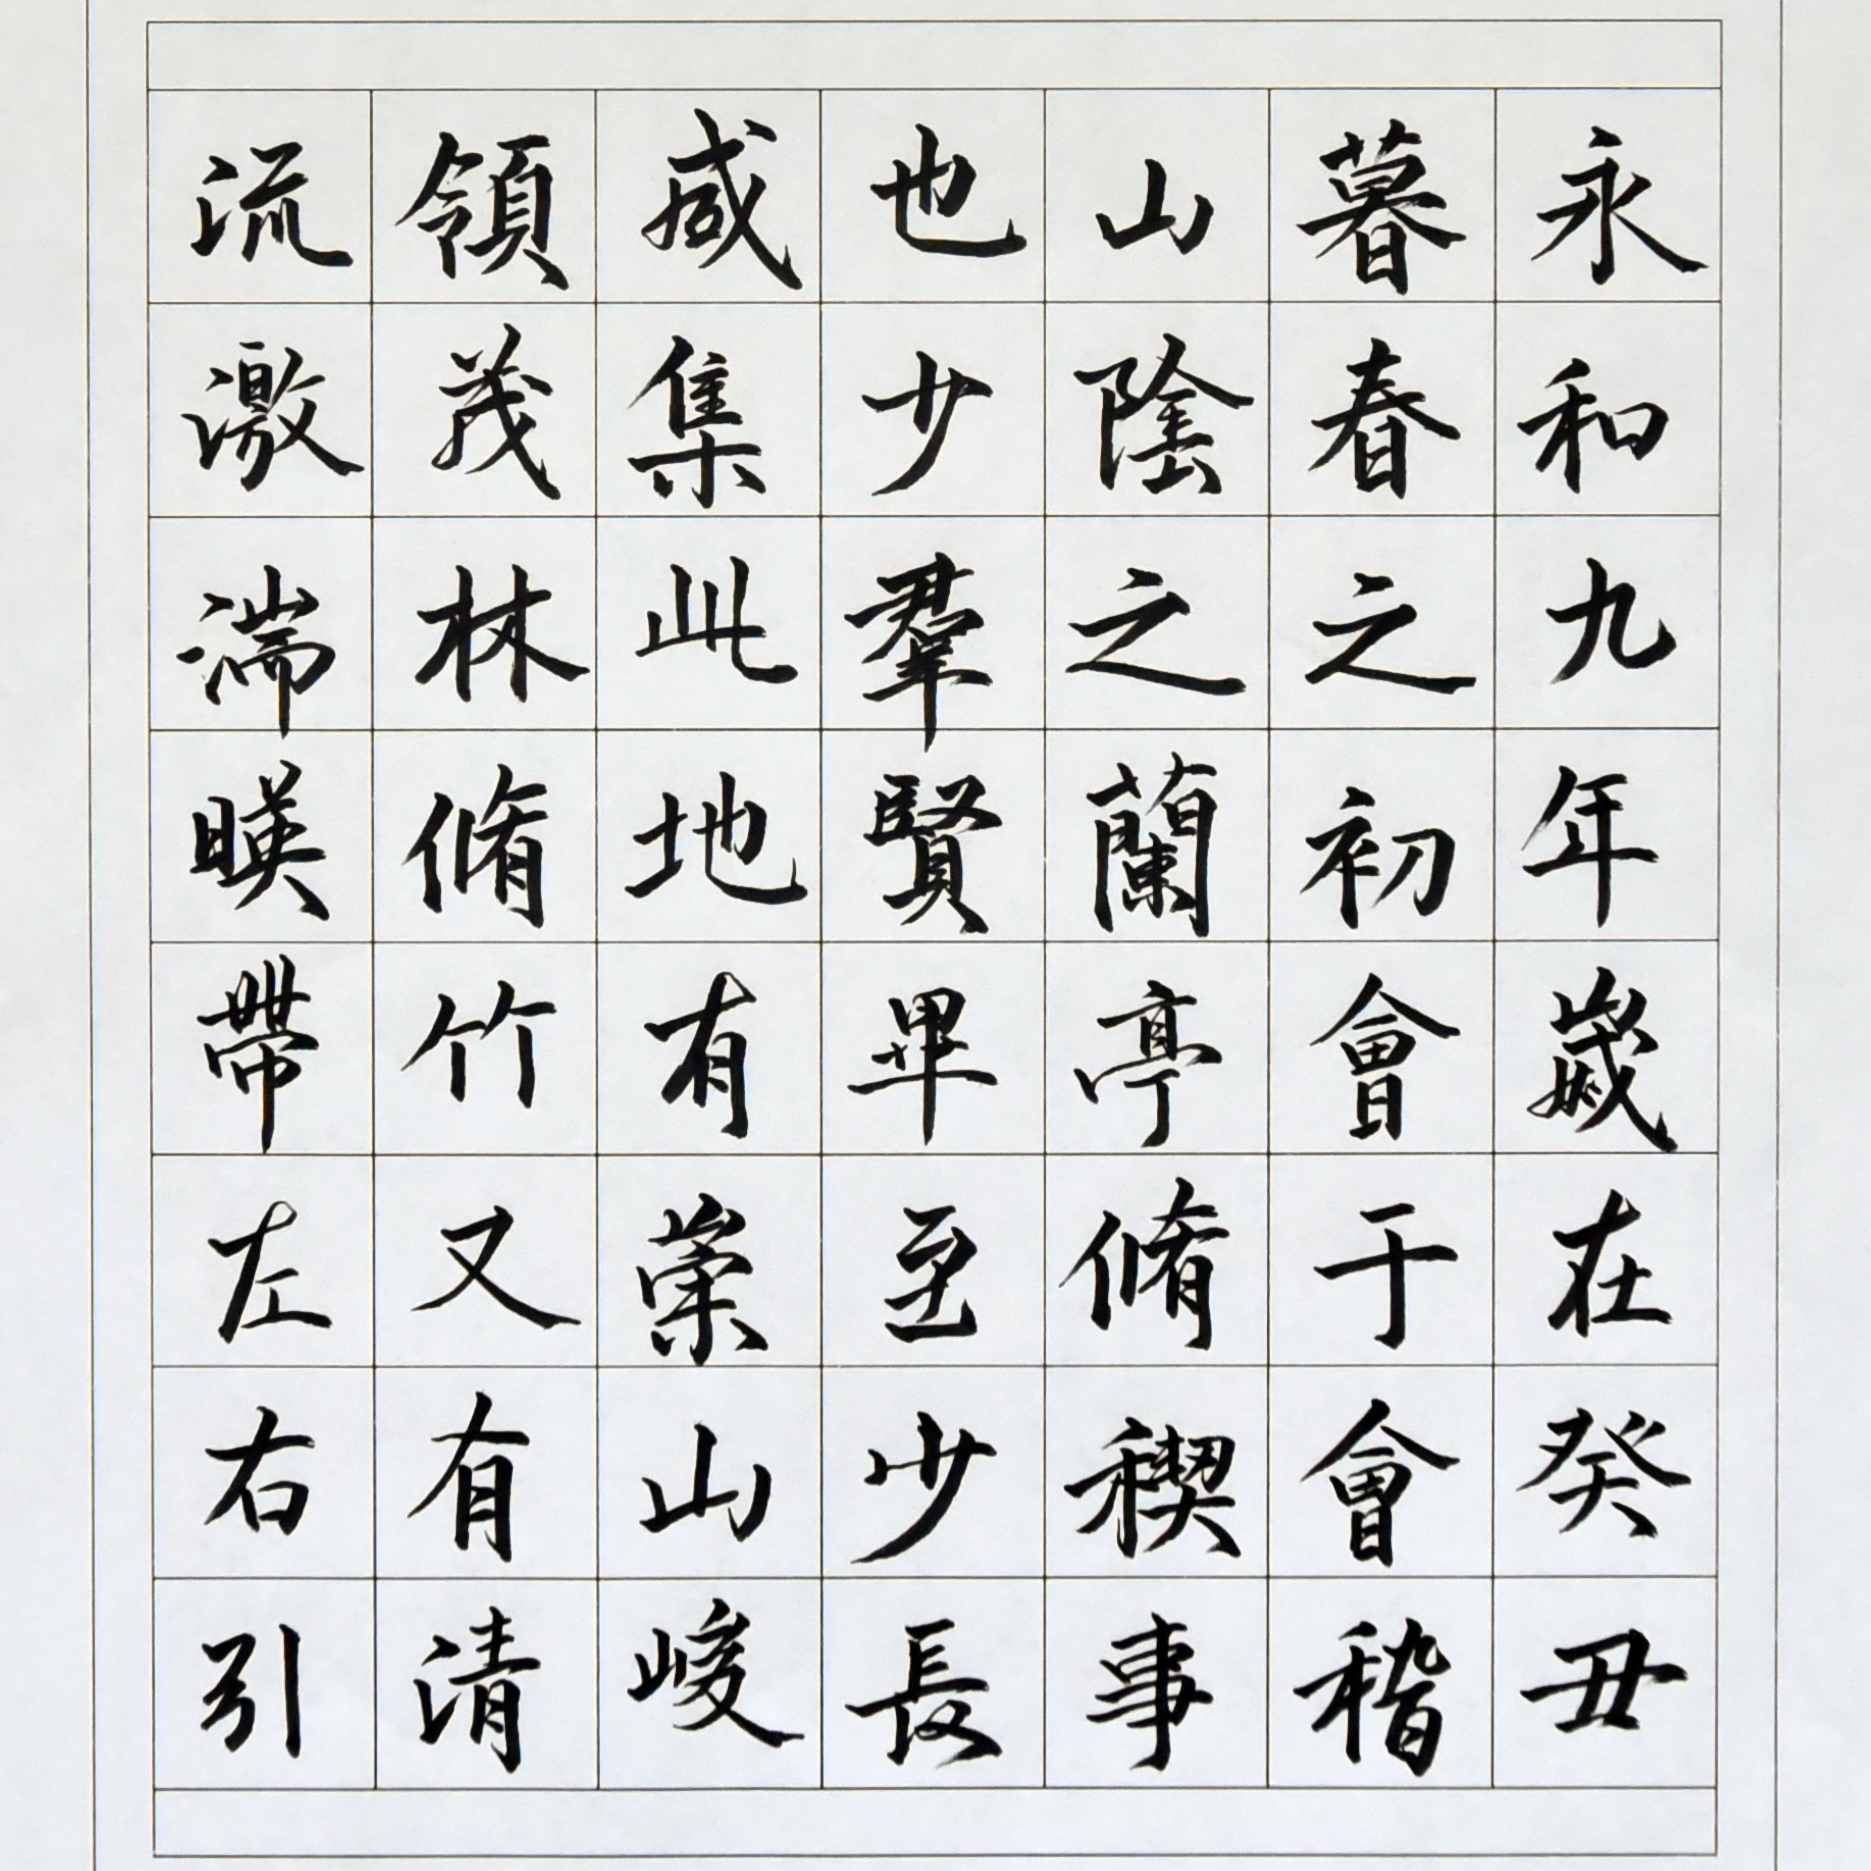 永和九年歲在癸丑
暮春之初會于會稽
山陰之蘭亭脩稧事
也少羣賢畢至少長
咸集此地有崇山峻
領茂林脩竹又有清
流激湍暎帶左右引